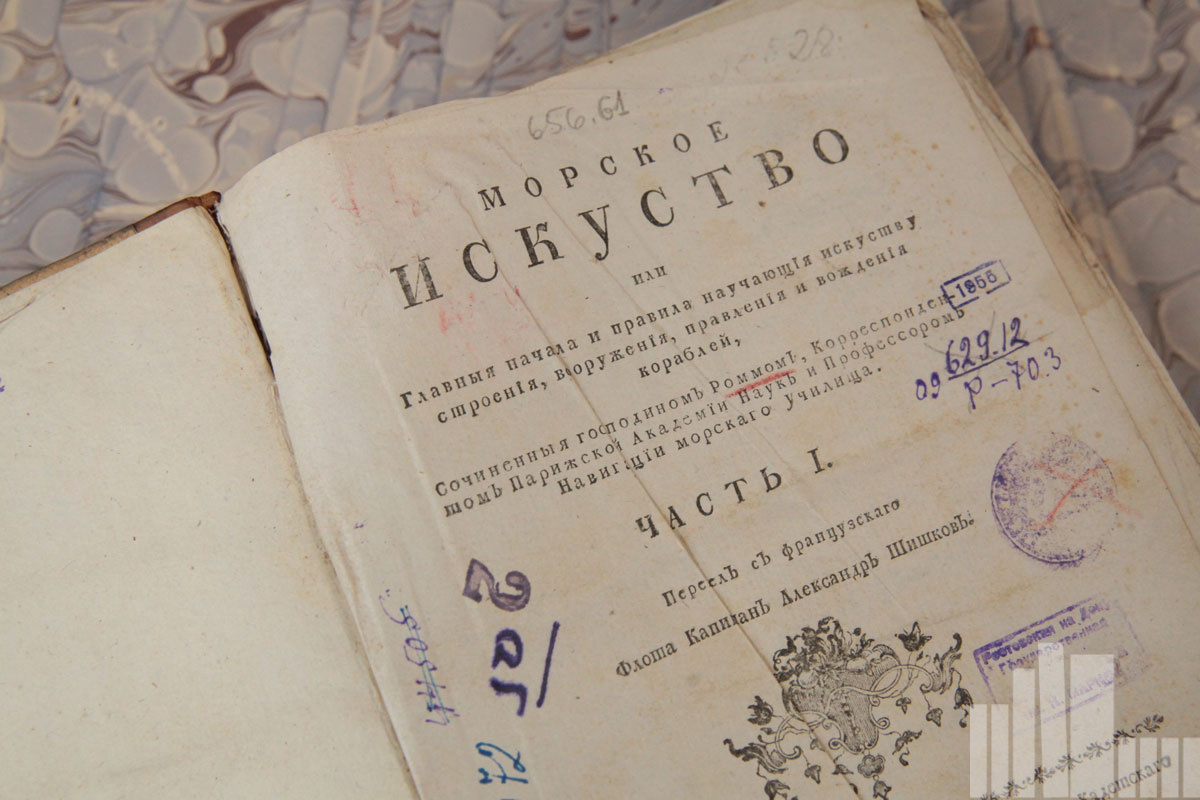 528
656.61
МОРСКОЕ
ИСКУСТВО
или
Главныя начала и правила научающія искуству
строенія, вооруженія, правленія и вожденія
кораблей,
1955
Сочиненныя господиномъ Роммомъ, Корреспонден-
томъ Парижской Академіи Наукъ и Профессоромъ
Навигаціи морскаго училища.
629.12
09
Р-70.3
ЧАСТЬ I.
Перевелъ съ французскаго
Флота Капитанъ Александръ Шишковъ.
Ростовская на Дону
Государственная
Кадетскаго